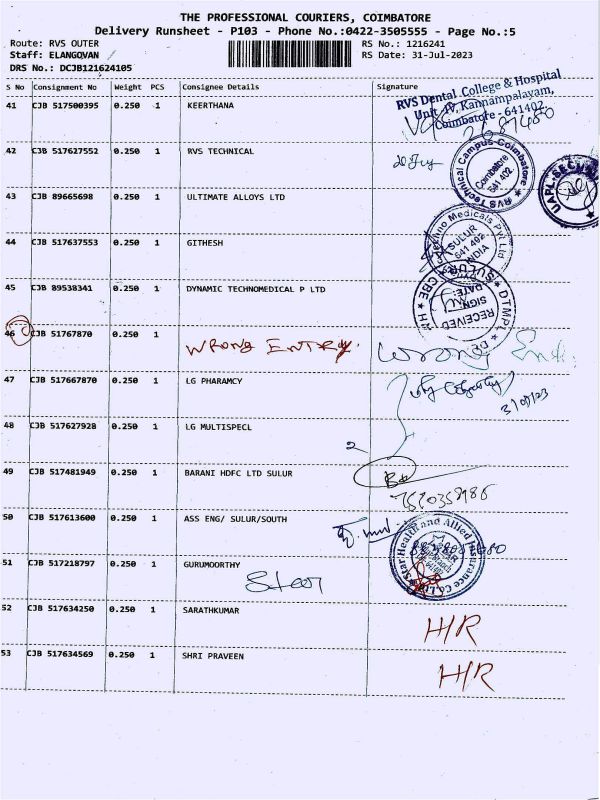 THE PROFESSIONAL COURIERS, COIMBATORE
Delivery Runsheet - P103 - Phone No.:0422-3505555 - Page No.:5
Route: RVS OUTER RS No.: 1216241
Staff: ELANGOVAN RS Date: 31-Jul-2023
DRS No.: DCJB121624105
S No Consignment No Weight PCS Consignee Details Signature
41 CJB 517500395 0.250 1 KEERTHANA
RVS Dental College & Hospital
Unit -IV, Kannampalayam,
Coimbatore - 641402
42 CJB 517627552 0.250 1 RVS TECHNICAL
RVS Technical Campus-Coimbatore
Coimbatore
641 402
43 CJB 89665698 0.250 1 ULTIMATE ALLOYS LTD
UAPL-SECURITY
44 CJB 517637553 0.250 1 GITHESH
Techno Medicals Pvt Ltd
SULUR
641 402
INDIA
45 CJB 89538341 0.250 1 DYNAMIC TECHNOMEDICAL P LTD
DTMPL
RECEIVED
SIGN
DATE:
46 CJB 51767870 0.250 1 WRONG ENTRY. Wrong
47 CJB 517667870 0.250 1 LG PHARAMCY
48 CJB 517627928 0.250 1 LG MULTISPECL
2
49 CJB 517481949 0.250 1 BARANI HDFC LTD SULUR
50 CJB 517613600 0.250 1 ASS ENG/ SULUR/SOUTH
Star Health and Allied Insurance Co. Ltd
51 CJB 517218797 0.250 1 GURUMOORTHY
Star
52 CJB 517634250 0.250 1 SARATHKUMAR H/R
53 CJB 517634569 0.250 1 SHRI PRAVEEN H/R